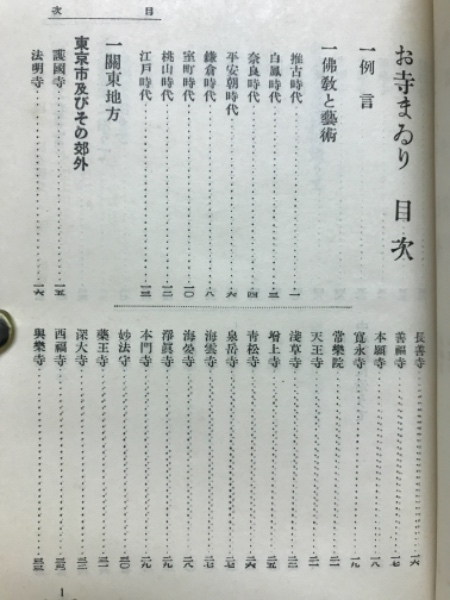 目次
お寺まゐり 目次
一例言
一佛敎と藝術
推古時代……一
白鳳時代……三
奈良時代……四
平安朝時代……六
鎌倉時代……八
室町時代……一〇
桃山時代……一二
江戶時代……一三
一關東地方
東京市及びその郊外
護國寺……一五
法明寺……一六
長善寺……一六
善福寺……一七
本願寺……一八
寬永寺……一九
常樂院……二一
天王寺……二一
淺草寺……二二
增上寺……二五
靑松寺……二六
泉岳寺……二七
海雲寺……二七
海晏寺……二八
淨眞寺……二九
本門寺……二九
妙法寺……三〇
藥王寺……三一
深大寺……三二
西福寺
與樂寺……三三
1